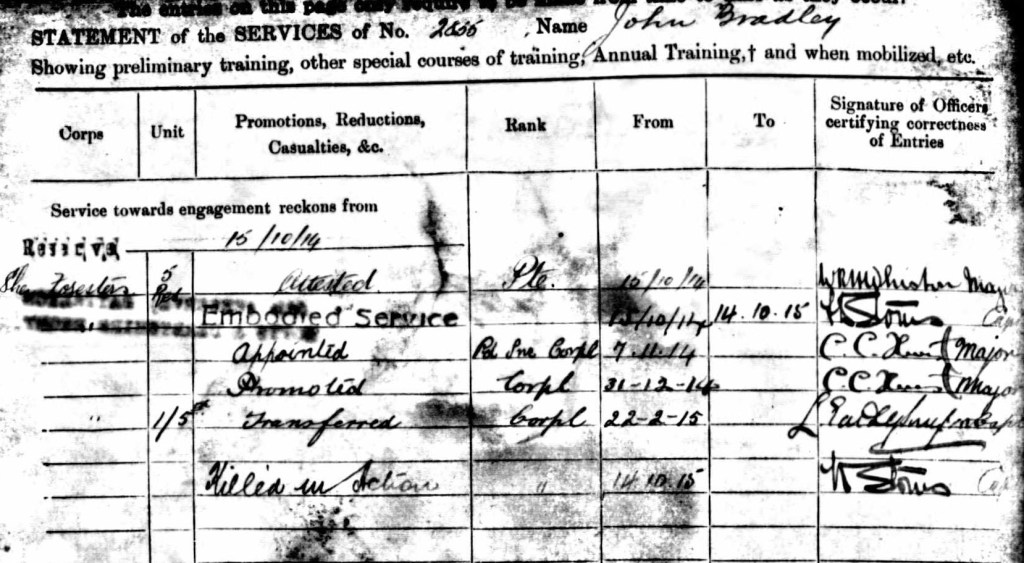 The entries on this page only require to be made from time to time as they occur.
STATEMENT of the SERVICES of No. 2855 , Name John Bradley
Showing preliminary training, other special courses of training, Annual Training,† and when mobilized, etc.
Corps Unit Promotions, Reductions, Casualties, &c. Rank From To Signature of Officers certifying correctness of Entries
Service towards engagement reckons from
15/10/14
Sher Foresters 5 Attested Pte. 15/10/14 Major
Embodied Service 15/10/14 14.10.15 Stous Cap
Appointed Pd Lne Corpl 7.11.14 C. C. Major
Promoted Corpl 31-12-14 C. C. Major
" 1/5th Transferred Corpl 22-2-15
Killed in Action " 14.10.15 Stous Cap